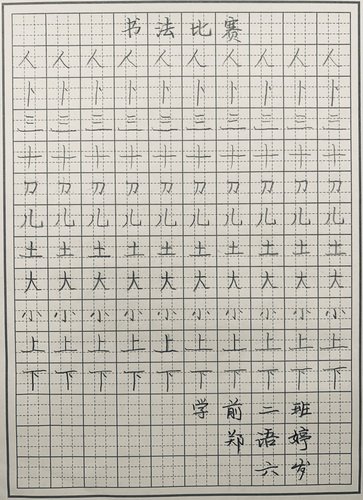 书法比赛
人人人人人人人人人人
卜卜卜卜卜卜卜卜卜卜
三三三三三三三三三三
十十十十十十十十十十
刀刀刀刀刀刀刀刀刀刀
儿儿儿儿儿儿儿儿儿儿
土土土土土土土土土土
大大大大大大大大大大
小小小小小小小小小小
上上上上上上上上上上
下下下下下下下下下下
学前二班
郑语婷
六岁